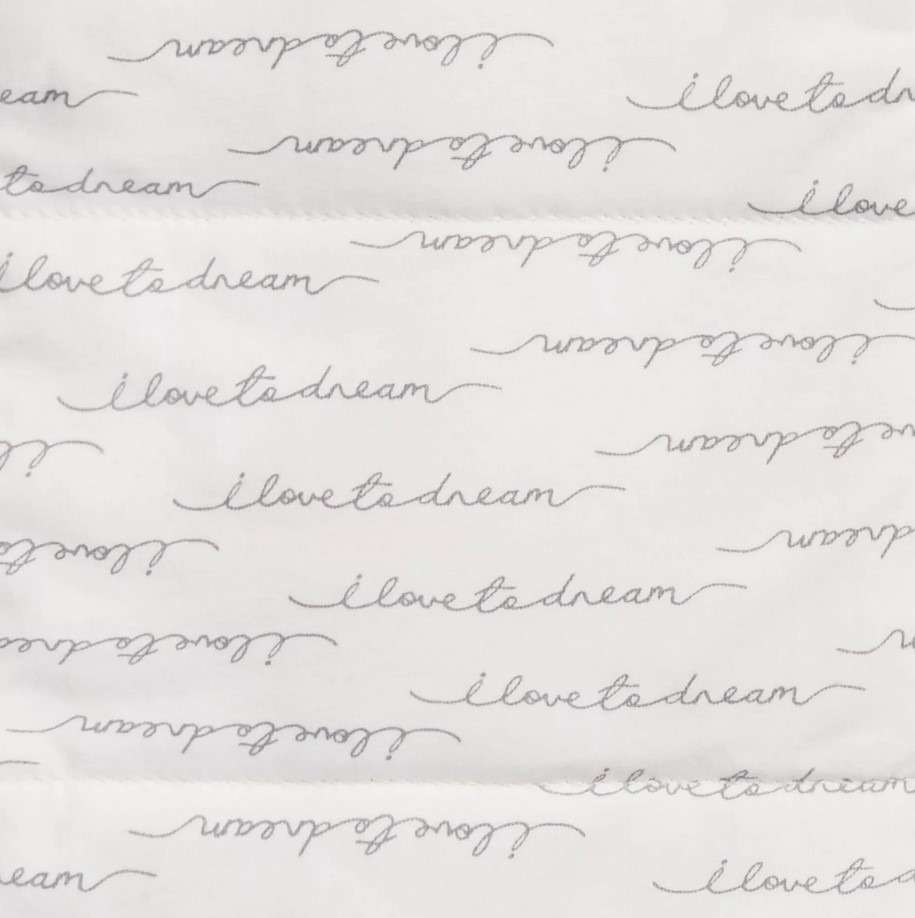 i love to dream
eam
i love to dr
i love to dream
to dream
i love
i love to dream
i love to dream
i love to dream
i love to dream
ve to dream
i l
i love to dream
dream
i love to
i love to dream
i love to drea
m
i love to dream
i love to dream
i love to dream
i love to dream
eam
i love to